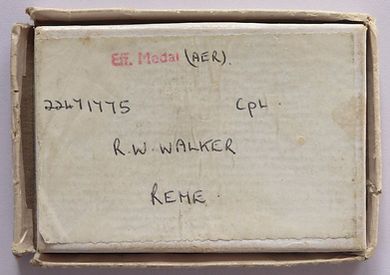 Eff. Medal (AER).
22471775 Cpl.
R.W. WALKER
REME.